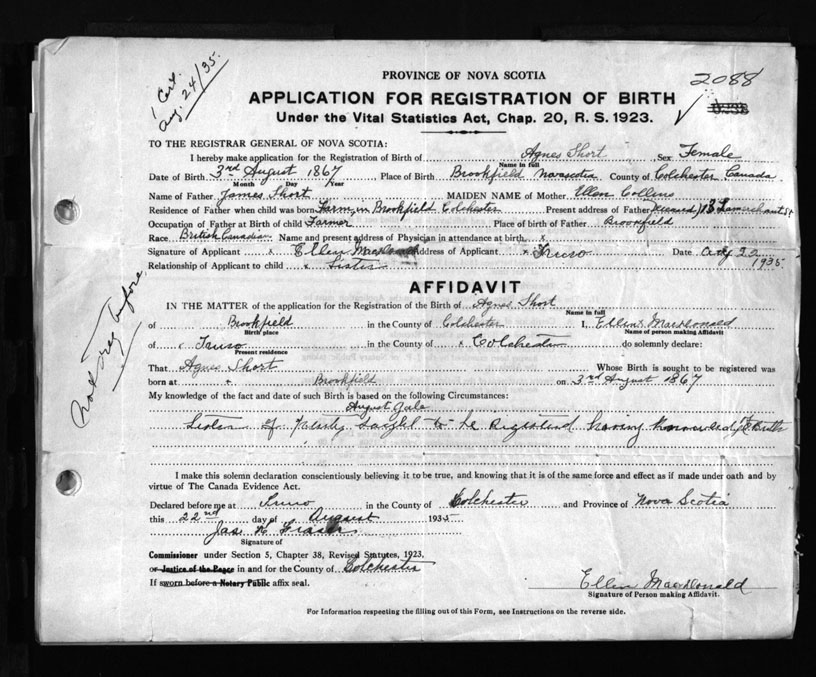 1 Cert.
Aug. 24/35.
2088
PROVINCE OF NOVA SCOTIA
APPLICATION FOR REGISTRATION OF BIRTH
Under the Vital Statistics Act, Chap. 20, R. S. 1923.
TO THE REGISTRAR GENERAL OF NOVA SCOTIA:
I hereby make application for the Registration of Birth of Agnes Short Sex Female
Name in full
Date of Birth 3rd August 1867 Place of Birth Brookfield Novascotia County of Colchester Canada
Month Day Year
Name of Father James Short MAIDEN NAME of Mother Ellen Collins
Residence of Father when child was born Farm in Brookfield Colchester Present address of Father (Deceased) 13
Occupation of Father at Birth of child Farmer Place of birth of Father Brookfield
Race British Canadian Name and present address of Physician in attendance at birth x
Signature of Applicant x Ellen MacDonald Address of Applicant x Truro Date Aug 20
1935
Relationship of Applicant to child x Sister
Not Reg before
AFFIDAVIT
IN THE MATTER of the application for the Registration of the Birth of Agnes Short
Name in full
of Brookfield in the County of Colchester I, Ellen MacDonald
Birth place Name of person making Affidavit
of Truro in the County of x Colchester do solemnly declare:
Present residence
That Agnes Short Whose Birth is sought to be registered was
born at Brookfield on 3rd August 1867
My knowledge of the fact and date of such Birth is based on the following Circumstances:
August
Sister of Party Sought to be Registered having Knowledge of Birth
I make this solemn declaration conscientiously believing it to be true, and knowing that it is of the same force and effect as if made under oath and by
virtue of The Canada Evidence Act.
Declared before me at Truro in the County of Colchester and Province of Nova Scotia
this 22nd day of August 1935
Jas H Fraser
Signature of
Commissioner under Section 5, Chapter 38, Revised Statutes, 1923.
or Justice of the Peace in and for the County of Colchester
If sworn before a Notary Public affix seal.
Ellen MacDonald
Signature of Person making Affidavit.
For Information respecting the filling out of this Form, see Instructions on the reverse side.